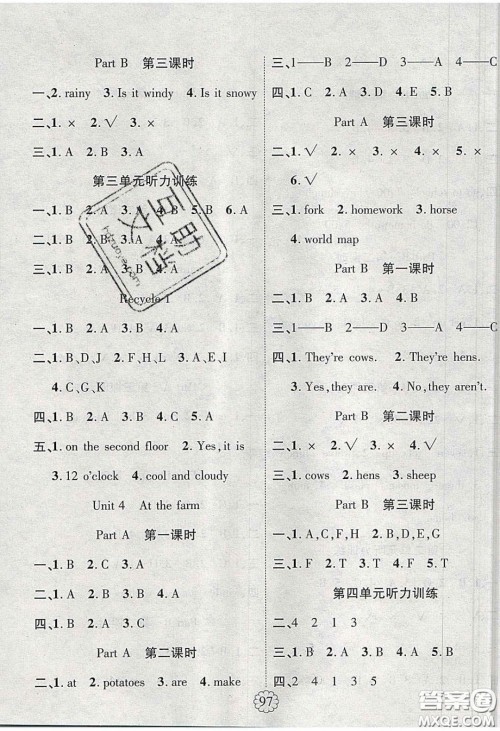 Part B 第三课时
一、2. rainy 3. Is it windy 4. Is it snowy
二、1. × 2. √ 3. ×
三、1. A 2. B 3. A
第三单元听力训练
一、1. B 2. A 3. A 4. B 5. B 6. A
二、1. B
三、1. A
四、1. B
Recycle 1
一、1. B 2. A 3. B 4. A 5. A
二、1. B、D、J 2. F、H、L 3. A、E、I
4. C、G、K
四、1. B 2. B 3. A 4. B 5. A
五、1. on the second floor 2. Yes, it is
3. 12 o'clock 4. cool and cloudy
Unit 4 At the farm
Part A 第一课时
二、1. A 2. B 3. B 4. A
三、1. B 2. A 3. A 4. B 5. A
四、1. B 2. A 3. C 4. A
Part A 第二课时
二、1. at 2. potatoes 3. are 4. make
三、1——B 2——D 3——A 4——C
四、1. C 2. A 3. D 4. E 5. B
Part A 第三课时
二、1. √ 2. × 3. √ 4. × 5. ×
6. √
三、1. fork 2. homework 3. horse
4. world map
Part B 第一课时
三、1——B 2——D 3——A 4——C
四、1. They're cows. 2. They're hens.
3. Yes, they are. 4. No, they aren't.
Part B 第二课时
二、1. × 2. × 3. √ 4. √
三、1. cows 2. hens 3. sheep
Part B 第三课时
二、1. A、F、F 2. B、D、E 3. C、G、H
三、1. F 2. T 3. F 4. F 5. T
第四单元听力训练
二、4 2 1 3
三、1. A 2. A 3. B 4. B 5. A
四、2 4 5 1 3
97
答案圈
MXQE.COM